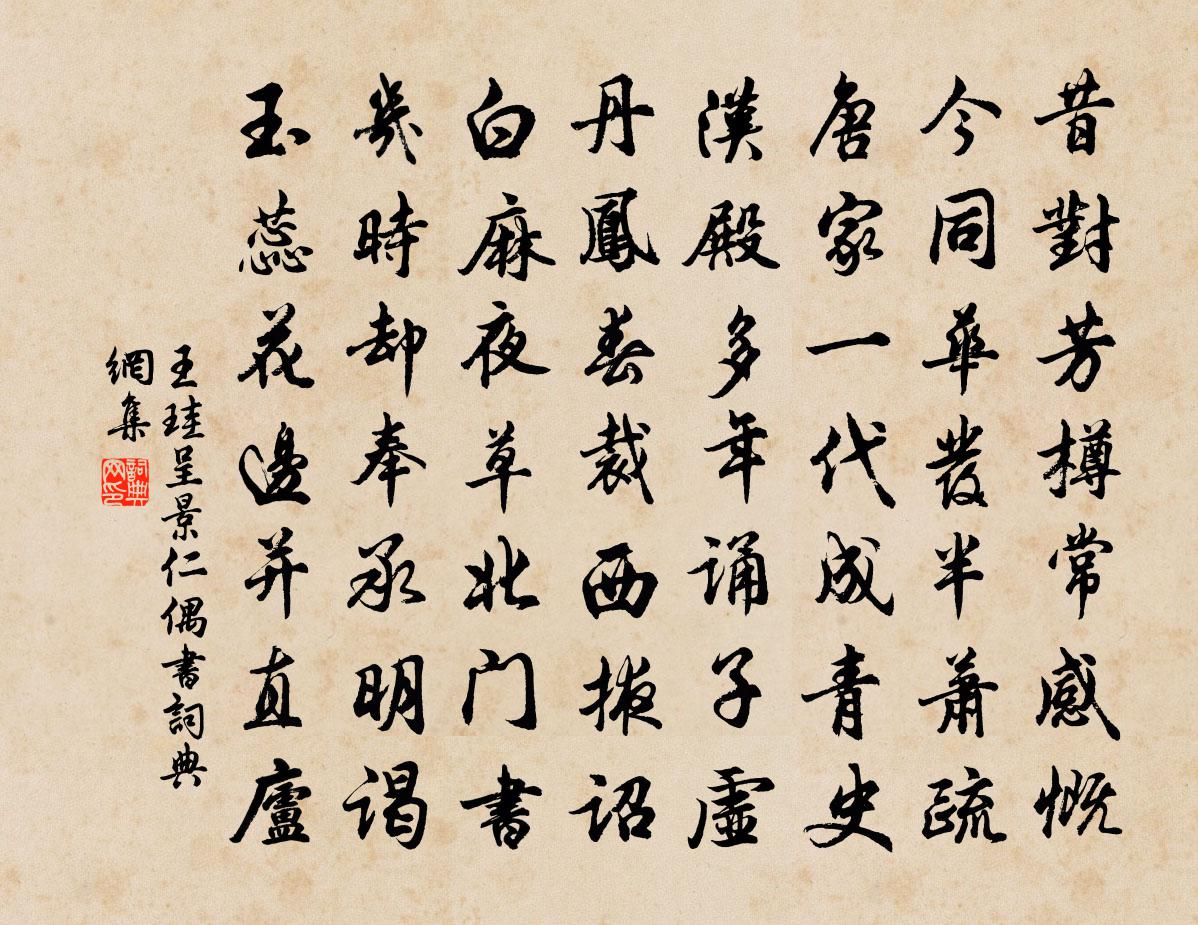 昔對芳樽常感慨
今同華發半蕭疏
唐家一代成青史
漢殿多年誦子虛
丹鳳春裁西掖詔
白麻夜草北门書
幾時却奉承明谒
玉蕊花邊并直廬
王珪呈景仁偶書詞典
網集
詞典网印